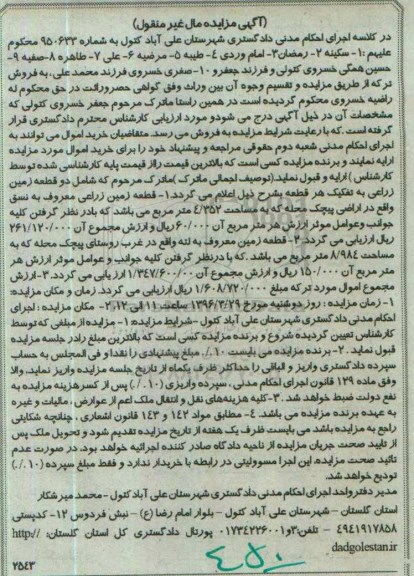 (آگهی مزایده مال غیر منقول)
در کلاسه اجرای احکام مدنی دادگستری شهرستان علی آباد کتول به شماره ۹۵۰۶۳۳ محکوم
علیهم :۱- سکینه ۲- رمضان۳- امام وردی ۴- طیبه ۵- مرضیه ۶- علی ۷- طاهره ۸-صفیه ۹-
حسین همگی خسروی کتولی و فرزند جعفر و ۱۰-صغری خسروی فرزند محمد علی، به فروش
ترکه از طریق مزایده و تقسیم وجوه آن بین وراث وفق گواهی حصروراثت در حق محکوم له
راضیه خسروی محکوم گردیده است در همین راستا ماترک مرحوم جعفر خسروی کتولی که
مشخصات آن در ذیل آگهی درج می شودو مورد ارزیابی کارشناس محترم دادگستری قرار
گرفته است .که با رعایت شرایط مزایده به فروش می رسد. متقاضیان خرید اموال می توانند به
اجرای احکام مدنی شعبه دوم حقوقی مراجعه و پیشنهاد خود را برای خرید اموال مورد مزایده
ارایه نمایند و برنده مزایده کسی است که بالاترین قیمت رااز قیمت پایه کارشناسی شده توسط
کارشناس ) ارایه و قبول نماید.(توصیف اجمالی ماترک )ماترک مرحوم که شامل دو قطعه زمین
زراعی به تفکیک هر قطعه بشرح ذیل اعلام می گردد.۱- قطعه زمین زراعی معروف به نسق
واقع در اراضی پیچک محله که به مساحت ۴/۳۵۲ متر مربع می باشد که بادر نظر گرفتن کلیه
جوانب وعوامل موثر ارزش هر متر مربع آن ۶۰/۰۰۰ ریال و ارزش مجموع آن ۲۶۱/۱۲۰/۰۰۰
ریال ارزیابی می گردد. ۲- قطعه زمین معروف به لته واقع در غرب روستای پیچک محله که به
مساحت ۸/۹۸۴ متر مربع می باشد .که با درنظر گرفتن کلیه جوانب و عوامل موثر ارزش هر
متر مربع آن ۱۵۰/۰۰۰ ریال و ارزش مجموع آن ۱/۳۴۷/۶۰۰/۰۰۰ ارزیابی می گردد. ۳-ارزش
مجموع اموال مورد ترکه مبلغ ۱/۶۰۸/۷۲۰/۰۰۰ ریال ارزیابی می گردد. زمان و مکان مزایده:
۱- زمان مزایده : روز دوشنبه مورخ ۱۳۹۶/۳/۲۹ ساعت ۱۱ الی ۱۲. ۲- مکان مزایده : اجرای
احکام مدنی دادگستری شهرستان علی آباد کتول -شرایط مزایده ۱- مزایده از مبلغی که توسط
کارشناس تعیین گردیده شروع و برنده مزایده کسی است که بالاترین مبلغ رادر جلسه مزایده
قبول نماید . ۲- برنده مزایده می بایست ۱۰ ٪ مبلغ پیشنهادی را نقد و فی المجلس به حساب
سپرده دادگستری واریز و الباقی را حداکثر ظرف یکماه از تاریخ جلسه مزایده واریز نماید. والا
وفق ماده ۱۲۹ قانون اجرای احکام مدنی ، سپرده واریزی (۱۰ ٪) پس از کسر هزینه مزایده به
نفع دولت ضبط خواهد شد . ۳-کلیه هزینه های نقل و انتقال ملک اعم از عوارض ، مالیات و غیره
به عهده برنده مزایده می باشد. ۴- مطابق مواد ۱۴۲ و ۱۴۳ قانون اشعاری ، چنانچه شکایتی
راجع به مزایده باشد می بایست ظرف یک هفته از تاریخ مزایده تقدیم شود و تحویل ملک پس
از تایید صحت جریان مزایده از ناحیه دادگاه صادر کننده اجرائیه خواهد بود. در صورت عدم
تائید صحت مزایده، این اجرا مسوولیتی در رابطه با خریدار ندارد و فقط مبلغ سپرده (۱۰ ٪)
تودیع خواهد شد.
مدیر دفتر واحد اجرای احکام مدنی دادگستری شهرستان علی آباد کتول - محمد میرشکار
استان گلستان – شهرستان علی آباد کتول – بلوار امام رضا (ع) – نبش فردوس ۱۲- کدپستی
۴۹۴۱۹۱۷۸۵۸ – تلفن:۳و۰۱۷۳۴۲۳۶۰۰۱ پورتال دادگستری کل استان گلستان: http://
dadgolestan.ir
۲۵۴۳
۴۵۰